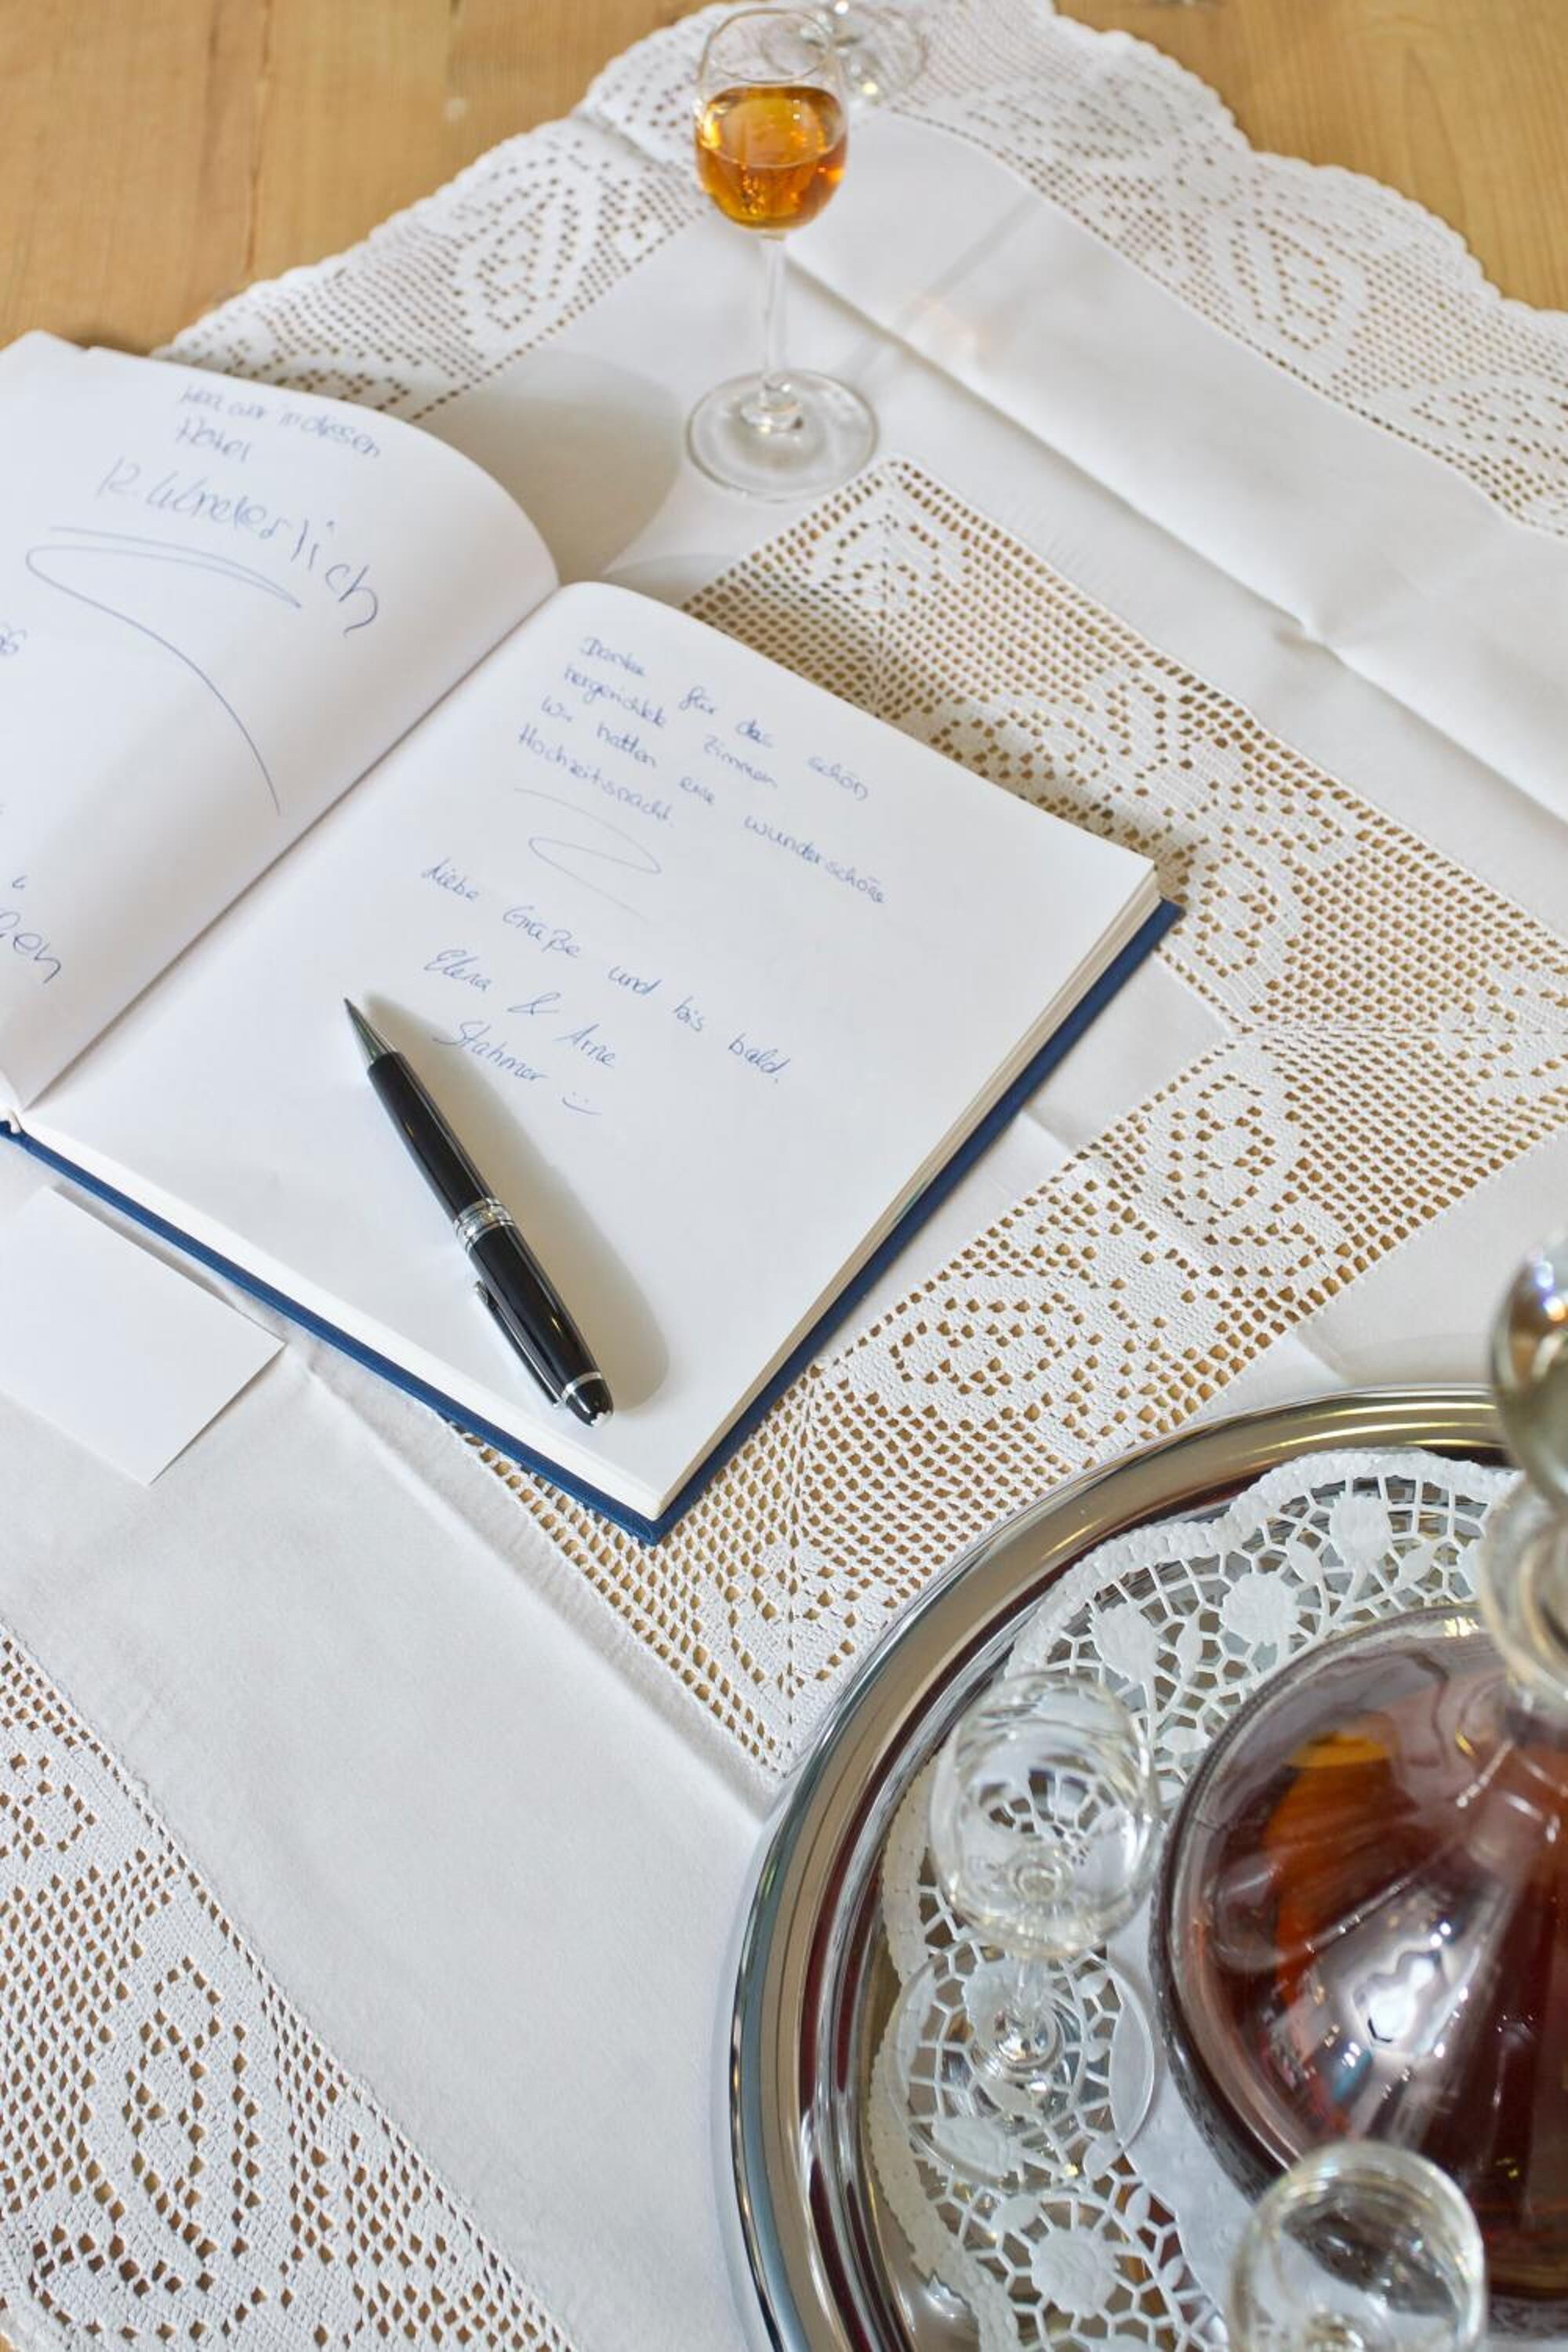 war in diesen
Hotel
R. Wunderlich
gen
Danke für das schön
hergerichtete Zimmer
Wir hatten eine wunderschöne
Hochzeitsnacht.
Liebe Grüße und bis bald.
Elena & Arne
Stahmer